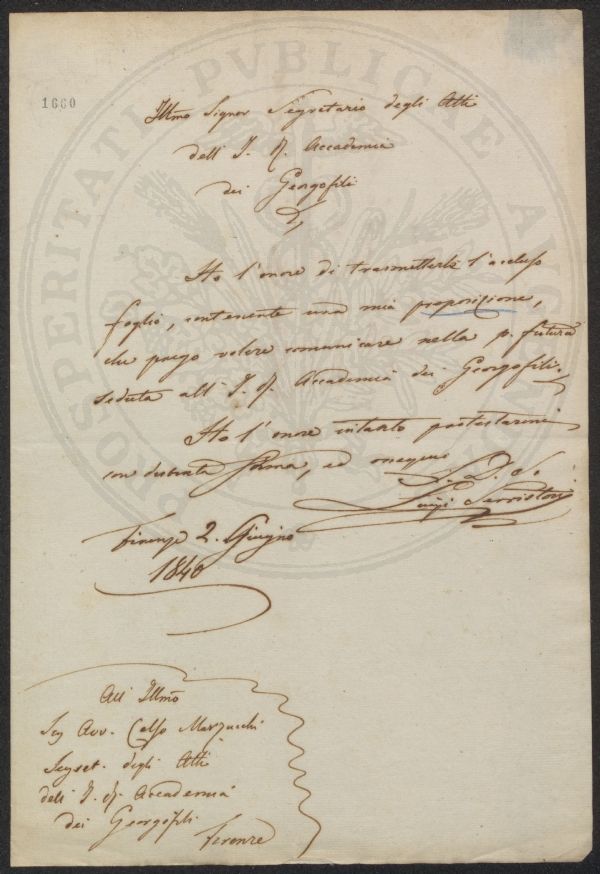 1660
Illmo Signor Segretario degli Atti
dell' I. R. Accademia
dei Georgofili
Ho l'onore di trasmetterle l'accluso
foglio, contenente una mia proposizione,
che prego volere comunicare nella p. futura
seduta all' I. R. Accademia dei Georgofili.
Ho l'onore intanto protestarmi
con distinta stima, ed ossequio
Luigi Serristori
Firenze 2. Giugno
1840
All' Illmo
Sig Avv. Celso Marzucchi
Segret. degli Atti
dell' I. R. Accademia
dei Georgofili
Firenze
PROSPERITATI PVBLICAE AVGENDAE